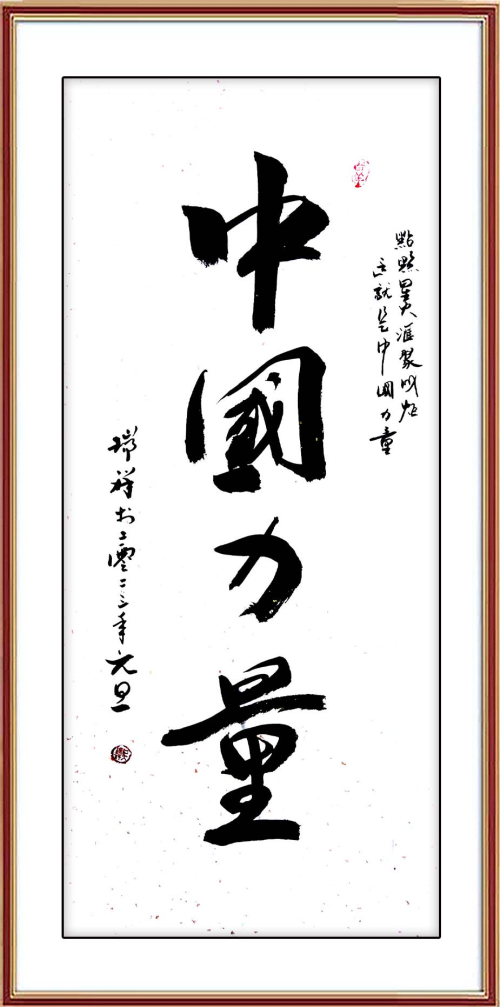 點點星火滙聚成炬
這就是中國力量
中國力量
瑞祥於二零二三年元旦